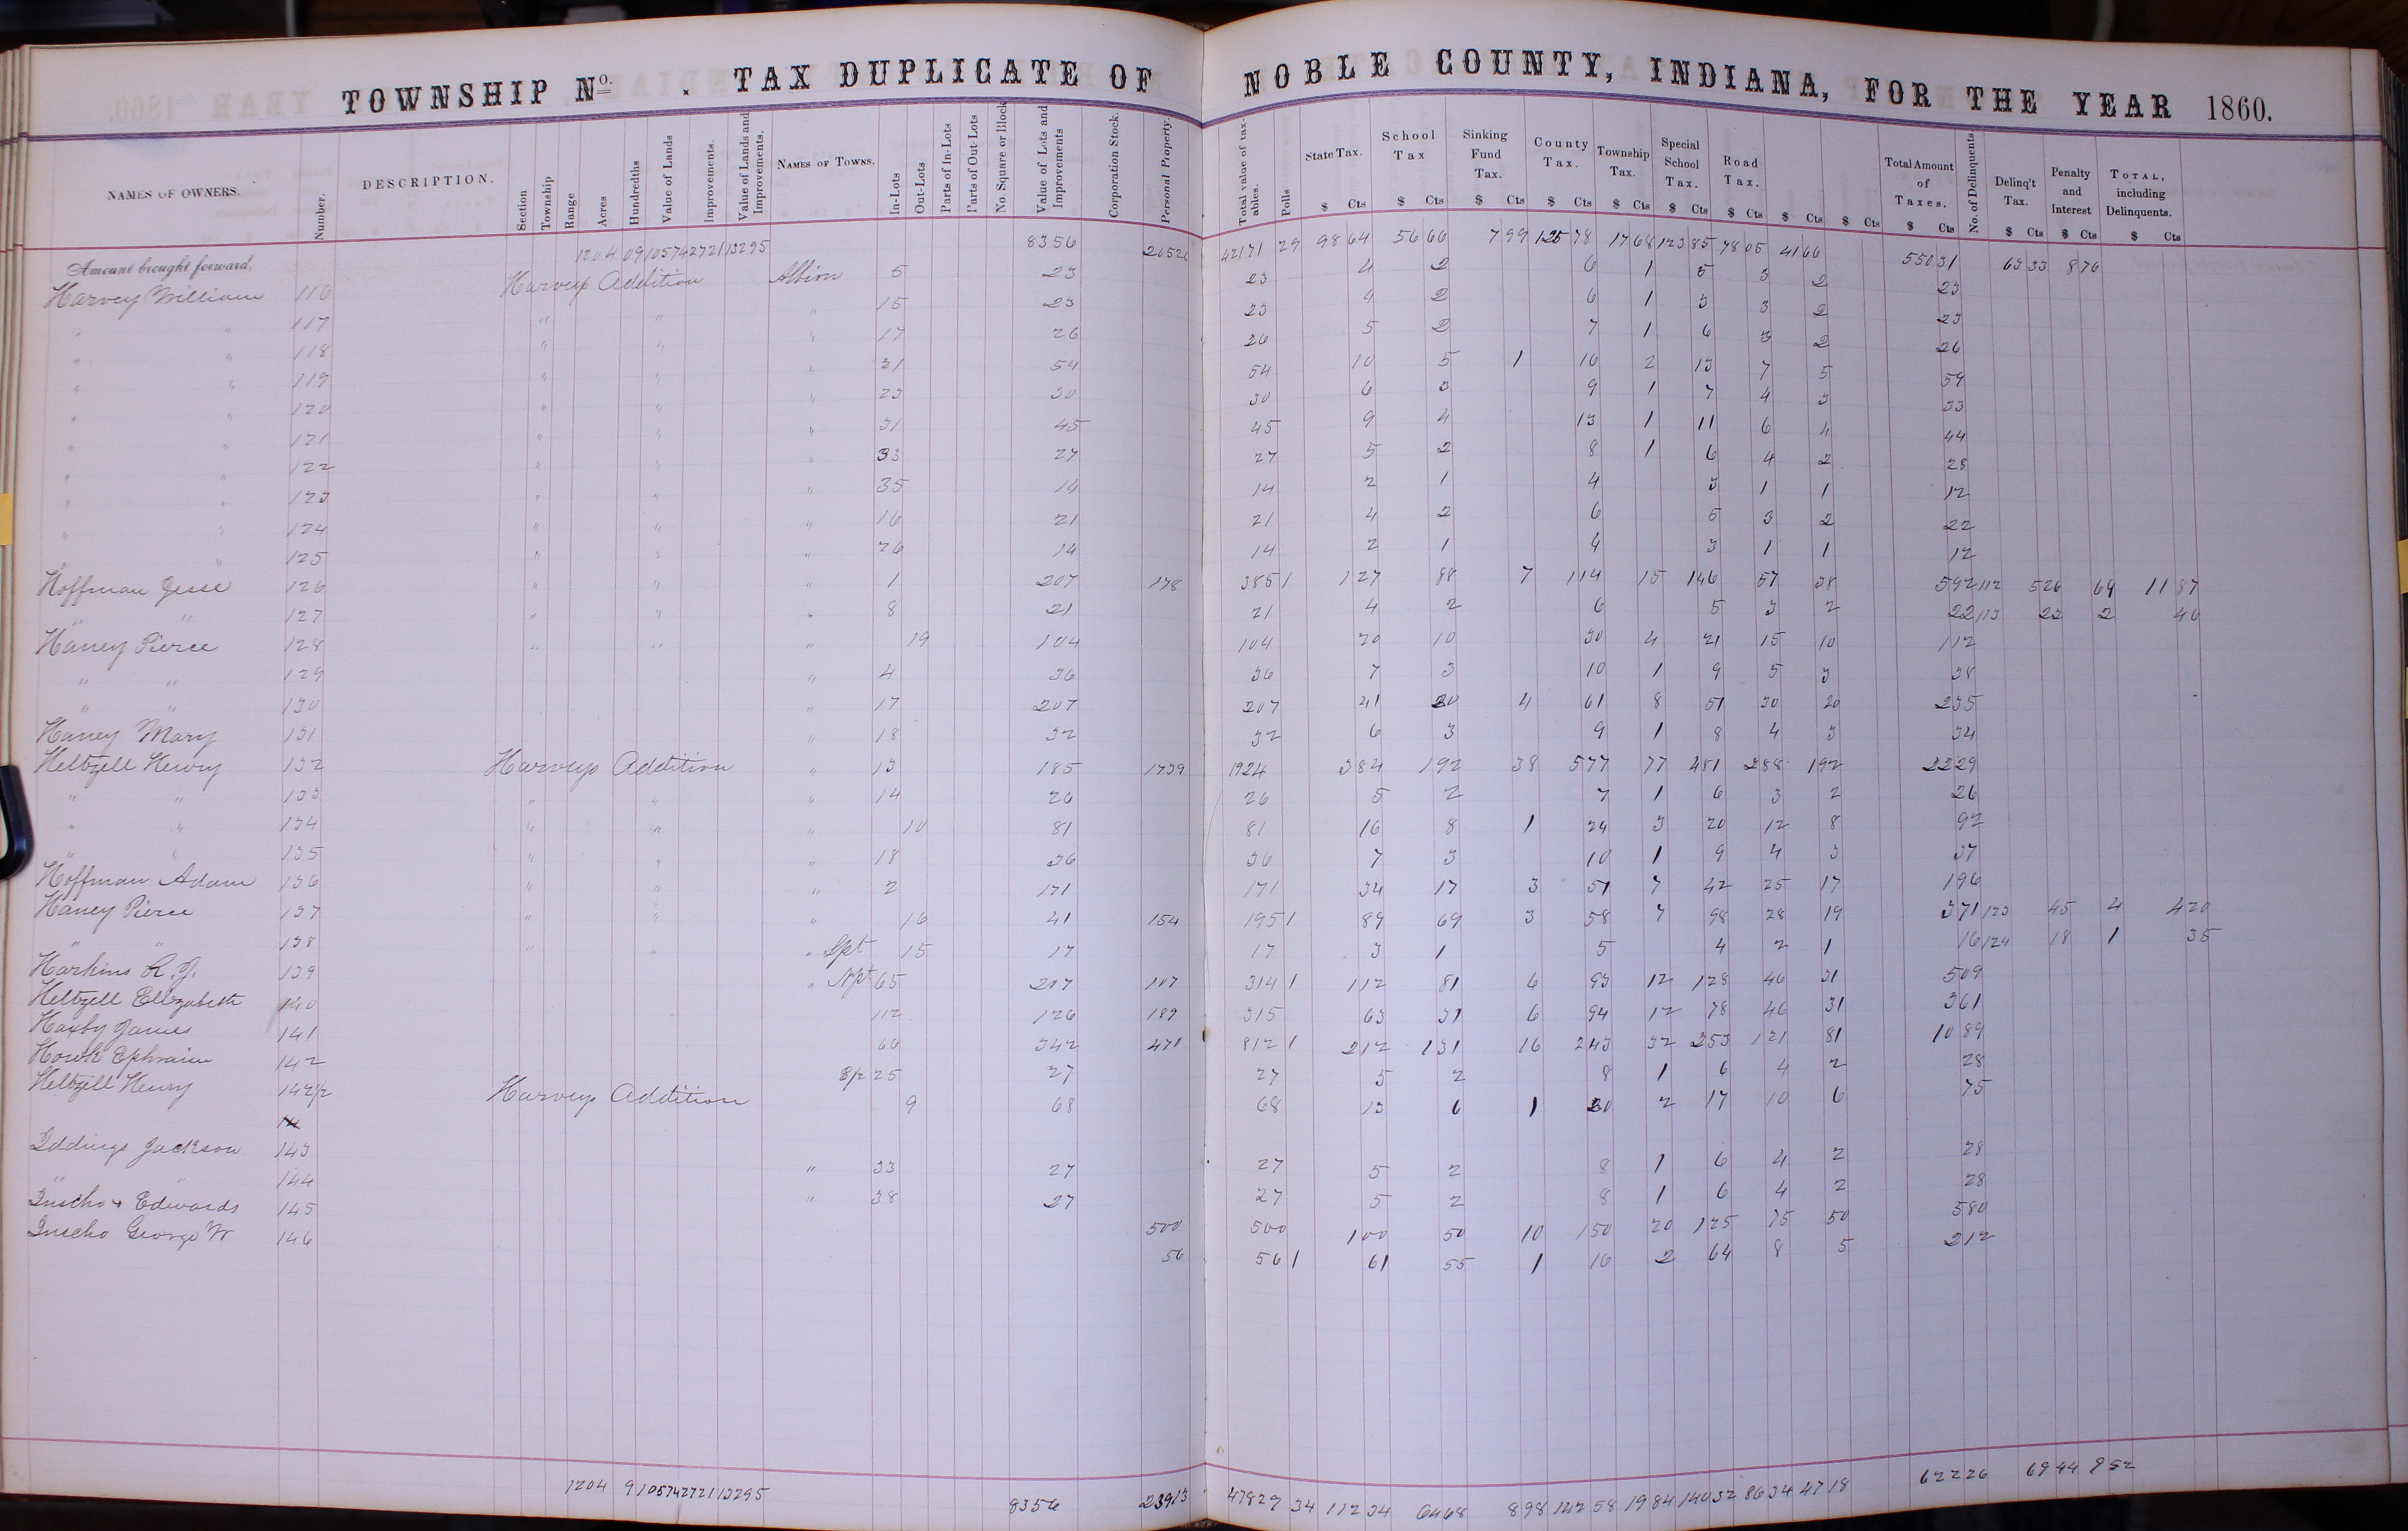 TOWNSHIP No. . TAX DUPLICATE OF NOBLE COUNTY, INDIANA, FOR THE YEAR 1860.
NAMES OF OWNERS. Number. DESCRIPTION. Section Township Range Acres Hundredths Value of Lands Improvements. Value of Lands and Improvements. NAMES OF TOWNS. In-Lots Out-Lots Parts of In-Lots Parts of Out-Lots No. Square or Block Value of Lots and Improvements Corporation Stock. Personal Property. Total value of taxables. Polls State Tax. School Tax Sinking Fund Tax. County Tax. Township Tax. Special School Tax. Road Tax. Total Amount of Taxes. No. of Delinquents. Delinq't Tax. Penalty and Interest TOTAL, including Delinquents.
$ Cts $ Cts $ Cts $ Cts $ Cts $ Cts $ Cts $ Cts $ Cts $ Cts $ Cts $ Cts $ Cts
Amount brought forward, 1204 09 10574 2721 13295 8356 20526 42171 29 98 64 56 66 7 99 125 78 17 68 123 85 78 05 41 66 550 31 63 33 8 76
Harvey William 116 Harveys Addition Albion 5 23 23 4 2 6 1 5 3 2 23
" " 117 " " " 15 23 23 4 2 6 1 5 3 2 23
" " 118 " " " 17 26 26 5 2 7 1 6 3 2 26
" " 119 " " " 21 54 54 10 5 1 16 2 13 7 5 59
" " 120 " " " 23 30 30 6 3 9 1 7 4 3 33
" " 121 " " " 31 45 45 9 4 13 1 11 6 4 44
" " 122 " " " 33 27 27 5 2 8 1 6 4 2 28
" " 123 " " " 35 14 14 2 1 4 3 1 1 12
" " 124 " " " 16 21 21 4 2 6 5 3 2 22
" " 125 " " " 26 14 14 2 1 4 3 1 1 12
Hoffman Jesse 126 " " " 1 207 178 385 1 1 27 88 7 1 14 15 1 46 57 38 5 92 112 5 26 69 11 87
" " 127 " " " 8 21 21 4 2 6 5 3 2 22 113 22 2 46
Haney Pierce 128 " " " 19 104 104 20 10 30 4 21 15 10 1 12
" " 129 " 4 36 36 7 3 10 1 9 5 3 38
" " 130 " 17 207 207 41 20 4 61 8 51 30 20 2 35
Haney Mary 131 " 18 32 32 6 3 9 1 8 4 3 34
Heltzell Henry 132 Harveys Addition " 13 185 1739 1924 3 84 1 92 38 5 77 77 4 81 2 88 1 92 22 29
" " 133 " " " 14 26 26 5 2 7 1 6 3 2 26
" " 134 " " " 10 81 81 16 8 1 24 3 20 12 8 92
" " 135 " " " 18 36 36 7 3 10 1 9 4 3 37
Hoffman Adam 136 " " " 2 171 171 34 17 3 51 7 42 25 17 1 96
Haney Pierce 137 " " " 16 41 154 195 1 89 69 3 58 7 98 28 19 3 71 123 45 4 4 20
" " 138 " " " Spt 15 17 17 3 1 5 4 2 1 16 124 18 1 35
Harkins R. J. 139 " Npt 65 207 107 314 1 1 12 81 6 93 12 1 28 46 31 5 09
Heltzell Ellizabeth 140 112 126 189 315 63 31 6 94 12 78 46 31 3 61
Haxby James 141 66 342 471 812 1 2 12 1 31 16 2 43 32 2 53 1 21 81 10 89
Howk Ephraim 142 S/2 25 27 27 5 2 8 1 6 4 2 28
Heltzell Henry 142 1/2 Harveys Addition 9 68 68 13 6 1 20 2 17 10 6 75
Iddings Jackson 143 " 33 27 27 5 2 8 1 6 4 2 28
" " 144 " 38 27 27 5 2 8 1 6 4 2 28
Inscho & Edwards 145 500 500 1 00 50 10 1 50 20 1 25 75 50 5 80
Inscho George W 146 56 56 1 61 55 1 16 2 64 8 5 2 12
1204 9 10574 2721 13295 8356 23913 47829 34 112 34 64 68 8 98 142 58 19 84 140 32 86 34 47 18 622 26 69 44 9 52